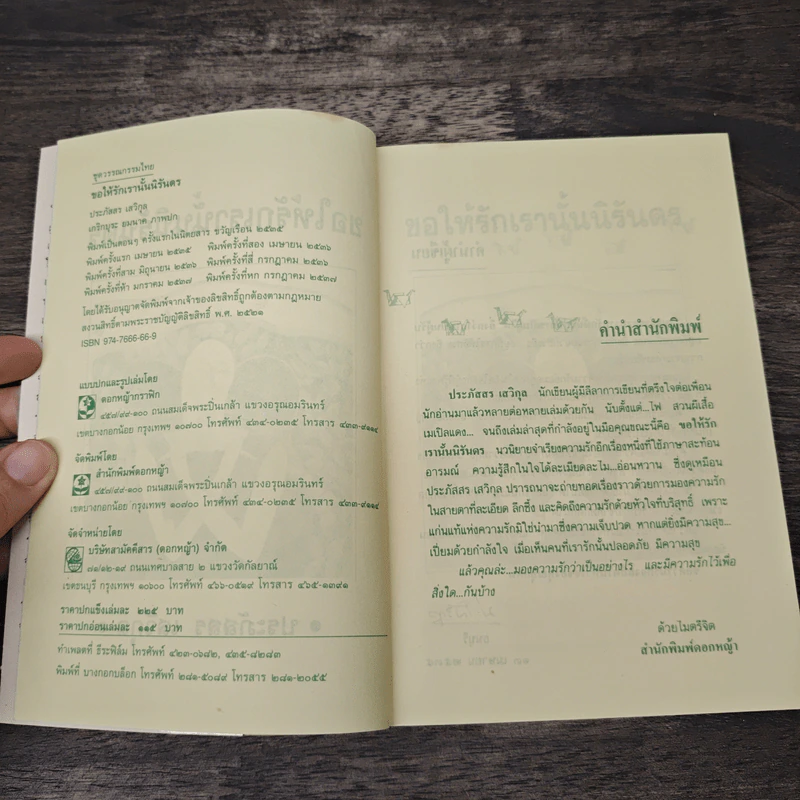 ชุดวรรณกรรมไทย
ขอให้รักเรานั้นนิรันดร
ประภัสสร เสวิกุล
เกริกบุระ ยมนาค ภาพปก
พิมพ์เป็นตอนๆ ครั้งแรกในนิตยสาร ขวัญเรือน ๒๕๓๕
พิมพ์ครั้งแรก เมษายน ๒๕๓๕ พิมพ์ครั้งที่สอง เมษายน ๒๕๓๖
พิมพ์ครั้งที่สาม มิถุนายน ๒๕๓๖ พิมพ์ครั้งที่สี่ กรกฎาคม ๒๕๓๖
พิมพ์ครั้งที่ห้า มกราคม ๒๕๓๗ พิมพ์ครั้งที่หก กรกฎาคม ๒๕๓๗
โดยได้รับอนุญาตจัดพิมพ์จากเจ้าของลิขสิทธิ์ถูกต้องตามกฎหมาย
สงวนสิทธิ์ตามพระราชบัญญัติลิขสิทธิ์ พ.ศ. ๒๕๒๑
ISBN 974-7666-66-9
แบบปกและรูปเล่มโดย
ดอกหญ้ากราฟิก
๔๕๗/๙๙-๑๐๐ ถนนสมเด็จพระปิ่นเกล้า แขวงอรุณอมรินทร์
เขตบางกอกน้อย กรุงเทพฯ ๑๐๗๐๐ โทรศัพท์ ๔๓๔-๐๒๓๕ โทรสาร ๔๓๓-๙๑๑๔
จัดพิมพ์โดย
สำนักพิมพ์ดอกหญ้า
๔๕๗/๙๙-๑๐๐ ถนนสมเด็จพระปิ่นเกล้า แขวงอรุณอมรินทร์
เขตบางกอกน้อย กรุงเทพฯ ๑๐๗๐๐ โทรศัพท์ ๔๓๔-๐๒๓๕ โทรสาร ๔๓๓-๙๑๑๔
จัดจำหน่ายโดย
บริษัทสามัคคีสาร (ดอกหญ้า) จำกัด
๗๑/๑๒-๑๙ ถนนเทศบาลสาย ๒ แขวงวัดกัลยาณ์
เขตธนบุรี กรุงเทพฯ ๑๐๖๐๐ โทรศัพท์ ๔๖๖-๐๕๑๙ โทรสาร ๔๖๕-๑๓๙๑
ราคาปกแข็งเล่มละ ๒๒๕ บาท
ราคาปกอ่อนเล่มละ ๑๑๕ บาท
ทำเพลตที่ ธีระฟิล์ม โทรศัพท์ ๔๒๓-๐๖๘๒, ๔๓๕-๘๒๘๓
พิมพ์ที่ บางกอกบล็อก โทรศัพท์ ๒๘๑-๕๐๘๙ โทรสาร ๒๘๑-๒๐๕๕
ขอให้รักเรานั้นนิรันดร
คำนำสำนักพิมพ์
ประภัสสร เสวิกุล นักเขียนผู้มีลีลาการเขียนที่ตรึงใจต่อเพื่อน
นักอ่านมาแล้วหลายต่อหลายเล่มด้วยกัน นับตั้งแต่...ไฟ สวนผีเสื้อ
เมเปิลแดง... จนถึงเล่มล่าสุดที่กำลังอยู่ในมือคุณขณะนี้คือ ขอให้รัก
เรานั้นนิรันดร นวนิยายจำเรียงความรักอีกเรื่องหนึ่งที่ใช้ภาษาสะท้อน
อารมณ์ ความรู้สึกในใจได้ละเมียดละไม...อ่อนหวาน ซึ่งดูเหมือน
ประภัสสร เสวิกุล ปรารถนาจะถ่ายทอดเรื่องราวด้วยการมองความรัก
ในสายตาที่ละเอียด ลึกซึ้ง และคิดถึงความรักด้วยหัวใจที่บริสุทธิ์ เพราะ
แก่นแท้แห่งความรักมิใช่นำมาซึ่งความเจ็บปวด หากแต่ยิ่งมีความสุข...
เปี่ยมด้วยกำลังใจ เมื่อเห็นคนที่เรารักนั้นปลอดภัย มีความสุข
แล้วคุณล่ะ...มองความรักว่าเป็นอย่างไร และมีความรักไว้เพื่อ
สิ่งใด...กันบ้าง
ด้วยไมตรีจิต
สำนักพิมพ์ดอกหญ้า